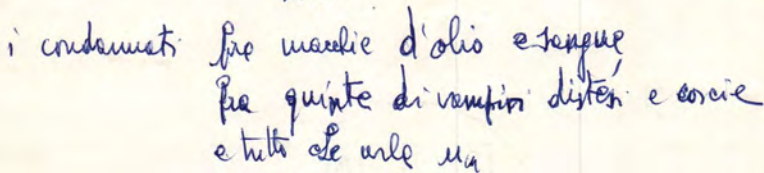 i condannati fra macchie d'olio e sangue
fra quinte di vampiri distesi e coscie
e tutto che urla un